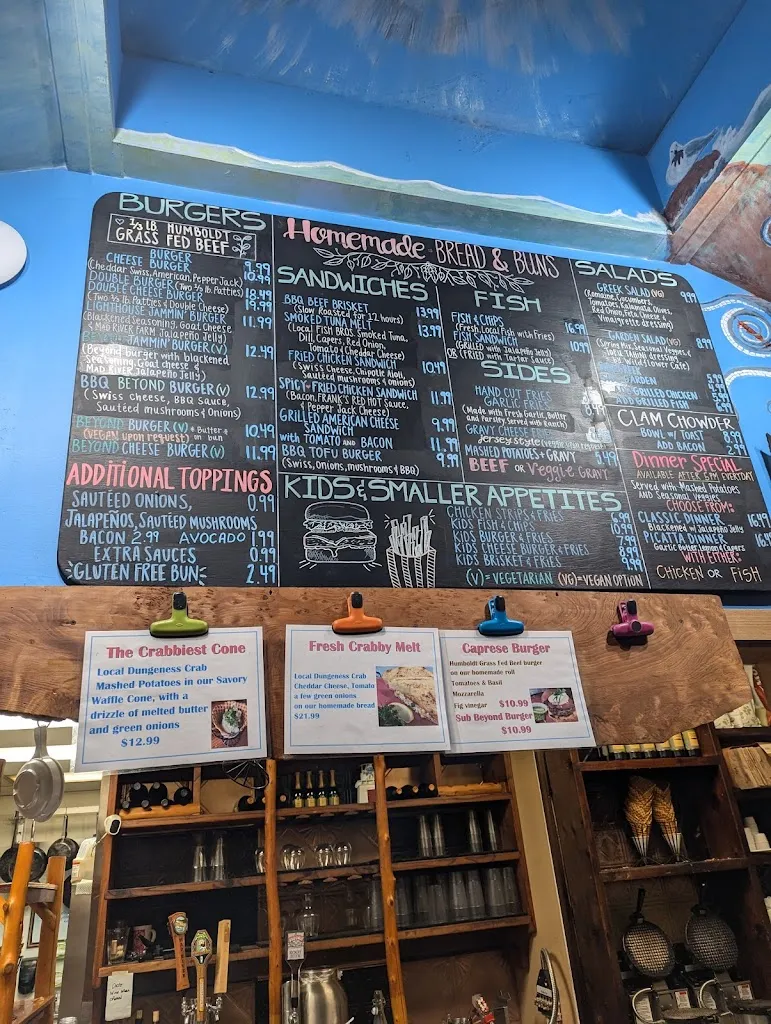 BURGERS
♡ 1/3 LB HUMBOLDT
GRASS FED BEEF
CHEESE BURGER 9.99
BURGER
(Cheddar, Swiss, American, Pepper Jack) 10.99
DOUBLE BURGER (Two 1/3 lb. Patties) 18.49
DOUBLE CHEESE BURGER 19.99
(Two 1/3 lb. Patties & Double Cheese)
JAMMIN' BURGER 11.99
(Blackened Seasoning, Goat Cheese
& MAD RIVER FARM Jalapeño Jelly)
JAMMIN' BURGER (V) 12.49
(Beyond burger with blackened
seasoning, goat cheese &
MAD RIVER JALAPEÑO Jelly)
BBQ BEYOND BURGER (V) 12.99
(Swiss cheese, BBQ sauce,
Sautéed mushrooms & Onions)
BEYOND BURGER (V) * Butter 10.49
(VEGAN upon request) on bun
BEYOND CHEESE BURGER (V) 11.99
ADDITIONAL TOPPINGS
SAUTÉED ONIONS, 0.99
JALAPEÑOS, SAUTÉED MUSHROOMS
BACON 2.99 AVOCADO 1.99
EXTRA SAUCES 0.99
GLUTEN FREE BUN 2.49
Homemade BREAD & BUNS
SANDWICHES
BBQ BEEF BRISKET 13.99
(Slow Roasted for 12 hours)
SMOKED TUNA MELT 13.99
(Local FISH BROS Smoked Tuna,
Dill, Capers, Red Onion,
Tomato & Cheddar Cheese)
FRIED CHICKEN SANDWICH 10.49
(Swiss Cheese, Chipotle Aioli,
Sautéed mushrooms & onions)
SPICY-FRIED CHICKEN SANDWICH 11.99
(Bacon, FRANK'S RED HOT SAUCE,
& Pepper Jack Cheese)
GRILLED AMERICAN CHEESE
SANDWICH 9.99
with TOMATO AND BACON 11.99
BBQ TOFU BURGER 9.99
(Swiss, Onions, mushrooms & BBQ)
FISH
FISH & CHIPS
(Fresh, Local Fish with Fries) 16.99
FISH SANDWICH
(Grilled with Jalapeño Jelly 10.99
OR (FRIED with Tarter Sauce)
SIDES
HAND CUT FRIES
GARLIC FRIES
(Made with Fresh Garlic, Butter
and Parsley Served with Ranch)
GRAVY CHEESE
Jersey style (veggie upon request)
MASHED POTATOES + GRAVY 5.49
BEEF or Veggie GRAVY
SALADS
GREEK SALAD (VG) 9.99
(Romaine, Cucumbers,
Tomatoes, Kalamata Olives,
Red Onion, Feta Cheese &
Vinaigrette dressing)
GARDEN SALAD (VG) 8.99
CLAM CHOWDER
BOWL w/ TOAST 8.99
ADD BACON 2.99
Dinner SPECIAL
AVAILABLE AFTER 5PM EVERYDAY
Served with Mashed Potatoes
AND Seasonal Veggies
CHOOSE FROM:
CLASSIC DINNER 16.49
Blackened w/ Jalapeño Jelly
PICATTA DINNER 16.49
Garlic Butter, Lemon & Capers
WITH EITHER:
CHICKEN OR FISH
KIDS & SMALLER APPETITES
CHICKEN STRIPS & FRIES 6.99
KIDS FISH & CHIPS 9.99
KIDS BURGER & FRIES 7.99
KIDS CHEESE BURGER & FRIES 8.99
KIDS BRISKET & FRIES 9.99
(V) = VEGETARIAN (VG) = VEGAN OPTION
The Crabbiest Cone
Local Dungeness Crab
Mashed Potatoes in our Savory
Waffle Cone, with a
drizzle of melted butter
and green onions
$12.99
Fresh Crabby Melt
Local Dungeness Crab
Cheddar Cheese, Tomato
a few green onions
on our homemade bread
$21.99
Caprese Burger
Humboldt Grass Fed Beef burger
on our homemade roll
Tomatoes & Basil
Mozzarella
Fig vinegar $10.99
Sub Beyond Burger
$10.99